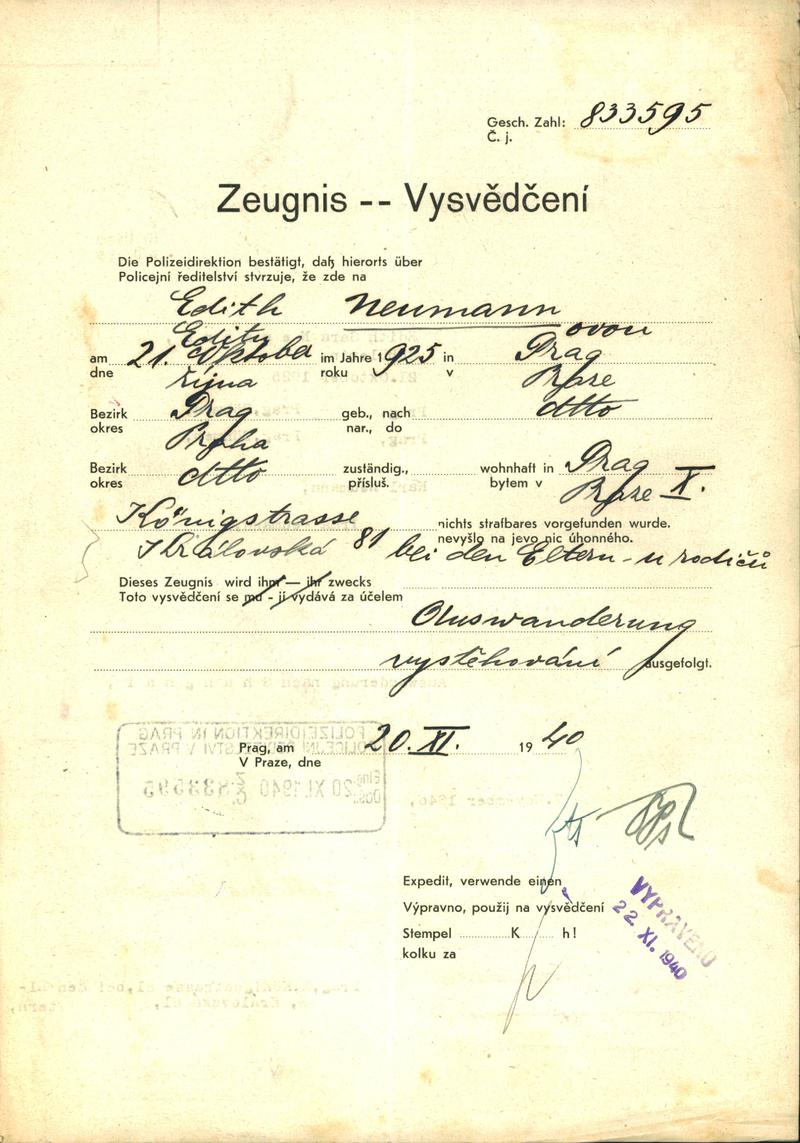 Gesch. Zahl: 833595
Č. j.
Zeugnis -- Vysvědčení
Die Polizeidirektion bestätigt, daß hierorts über
Policejní ředitelství stvrzuje, že zde na
Edith Neumann
Editu ovou
am 21. Oktober im Jahre 1925 in Prag
dne října roku v Praze
Bezirk Prag geb., nach dtto
okres Praha nar., do
Bezirk dtto zuständig., wohnhaft in Prag
okres přísluš. bytem v Praze X.
Königstrasse nichts strafbares vorgefunden wurde.
Královská 81 nevyšlo na jevo nic úhonného.
bei den Eltern - u rodičů
Dieses Zeugnis wird ihm — ihr zwecks
Toto vysvědčení se mu - jí vydává za účelem
Auswanderung
vystěhování ausgefolgt.
POLIZEIDIREKTION IN PRAG
POLICEJNÍ ŘEDITELSTVÍ V PRAZE
20 XI. 1940 833595
Prag, am 20. XI. 1940
V Praze, dne
Expedit, verwende einen
Výpravno, použij na vysvědčení
Stempel K h!
kolku za
VYPRAVENO
22. XI. 1940